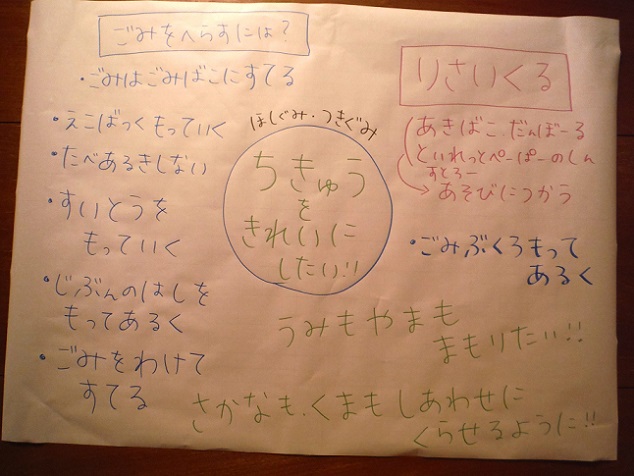 ごみをへらすには?
・ごみはごみばこにすてる
・えこばっくもっていく
・たべあるきしない
・すいとうを
もっていく
・じぶんのはしを
もってあるく
・ごみをわけて
すてる
ほしぐみ・つきぐみ
ちきゅう
を
きれいに
したい!!
りさいくる
あきばこ.だんぼーる
といれっとぺーぱーのしん
すとろー
→あそびにつかう
・ごみぶくろもって
あるく
うみもやまも
まもりたい!!
さかなも.くまもしあわせに
くらせるように!!